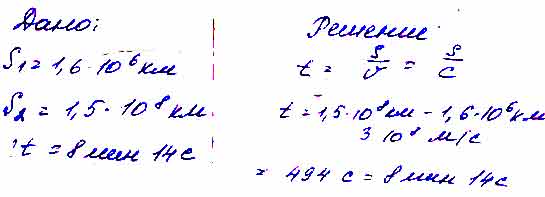 Дано:
S1 = 1,6 · 10⁶ км
S2 = 1,5 · 10⁸ км
t = 8 мин 14 с
Решение
t = S/v = S/c
t = 1,5 · 10⁸ км - 1,6 · 10⁶ км
3 10⁸ м/с
= 494 с = 8 мин 14 с